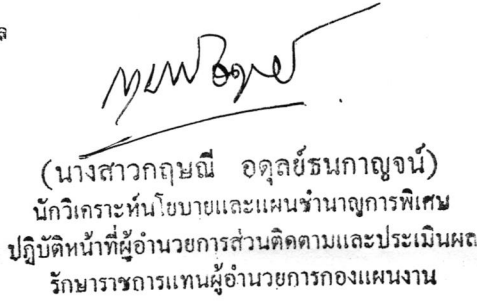 (นางสาวกฤษณี อดุลย์ธนกาญจน์)
นักวิเคราะห์นโยบายและแผนชำนาญการพิเศษ
ปฏิบัติหน้าที่ผู้อำนวยการส่วนติดตามและประเมินผล
รักษาราชการแทนผู้อำนวยการกองแผนงาน